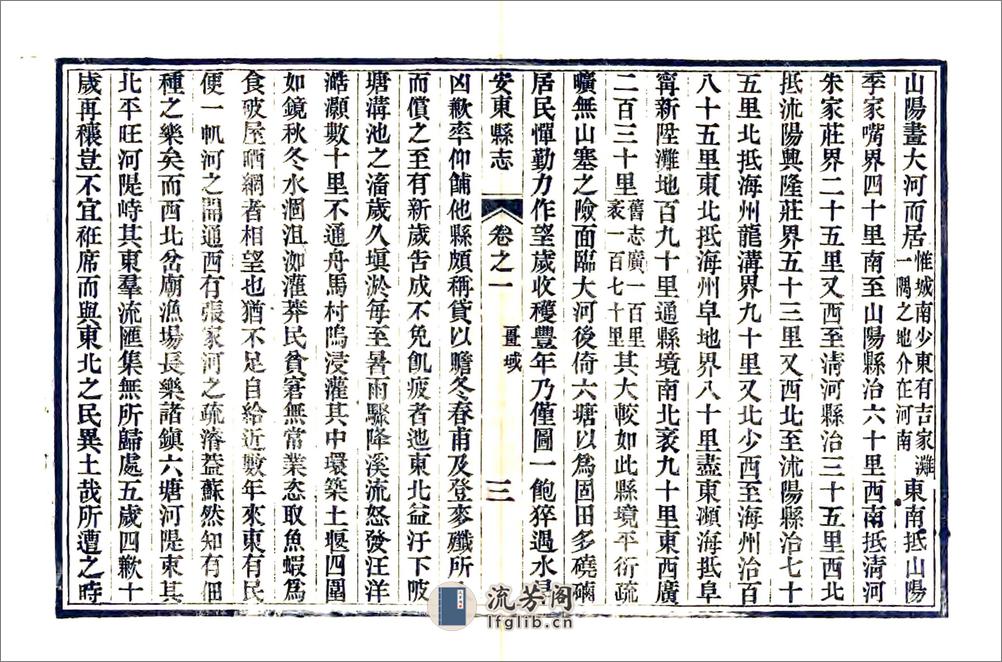 山陽畫大河而居惟城南少東有吉家灘一隅之地介在河南東南抵山陽
季家嘴界四十里南至山陽縣治六十里西南抵淸河
朱家莊界二十五里又西至淸河縣治三十五里西北
抵沭陽興隆莊界五十三里又西北至沭陽縣治七十
五里北抵海州龍溝界九十里又北少西至海州治百
八十五里東北抵海州阜地界八十里盡東瀕海抵阜
寗新陞灘地百九十里通縣境南北袤九十里東西廣
二百三十里舊志廣一百里袤一百七十里其大較如此縣境平衍疏
曠無山塞之險面臨大河後倚六塘以爲固田多磽礀
居民憚勤力作望歲收穫豐年乃僅圖一飽猝遇水
安東縣志 卷之一 畺域 三
凶歉率仰餔他縣頗稱貸以贍冬春甫及登麥殲所
而償之至有新歲告成不免飢疲者迆東北益汙下陂
塘溝池之滀歲久塡淤每至暑雨驟降溪流怒發汪洋
澔灝數十里不通舟馬村隖浸灌其中環築土堰四圍
如鏡秋冬水涸沮洳灌莽民貧窘無常業恣取魚蝦爲
食破屋晒網者相望也猶不足自給近數年來東有民
便一帆河之開通西有張家河之疏濬葢蘇然知有佃
種之樂矣而西北岔廟漁場長樂諸鎭六塘河隄東其
北平旺河隄峙其東羣流匯集無所歸處五歲四歉十
歲再穰豈不宜袵席而與東北之民異土哉所遭之時
流芳阁
lfglib.cn